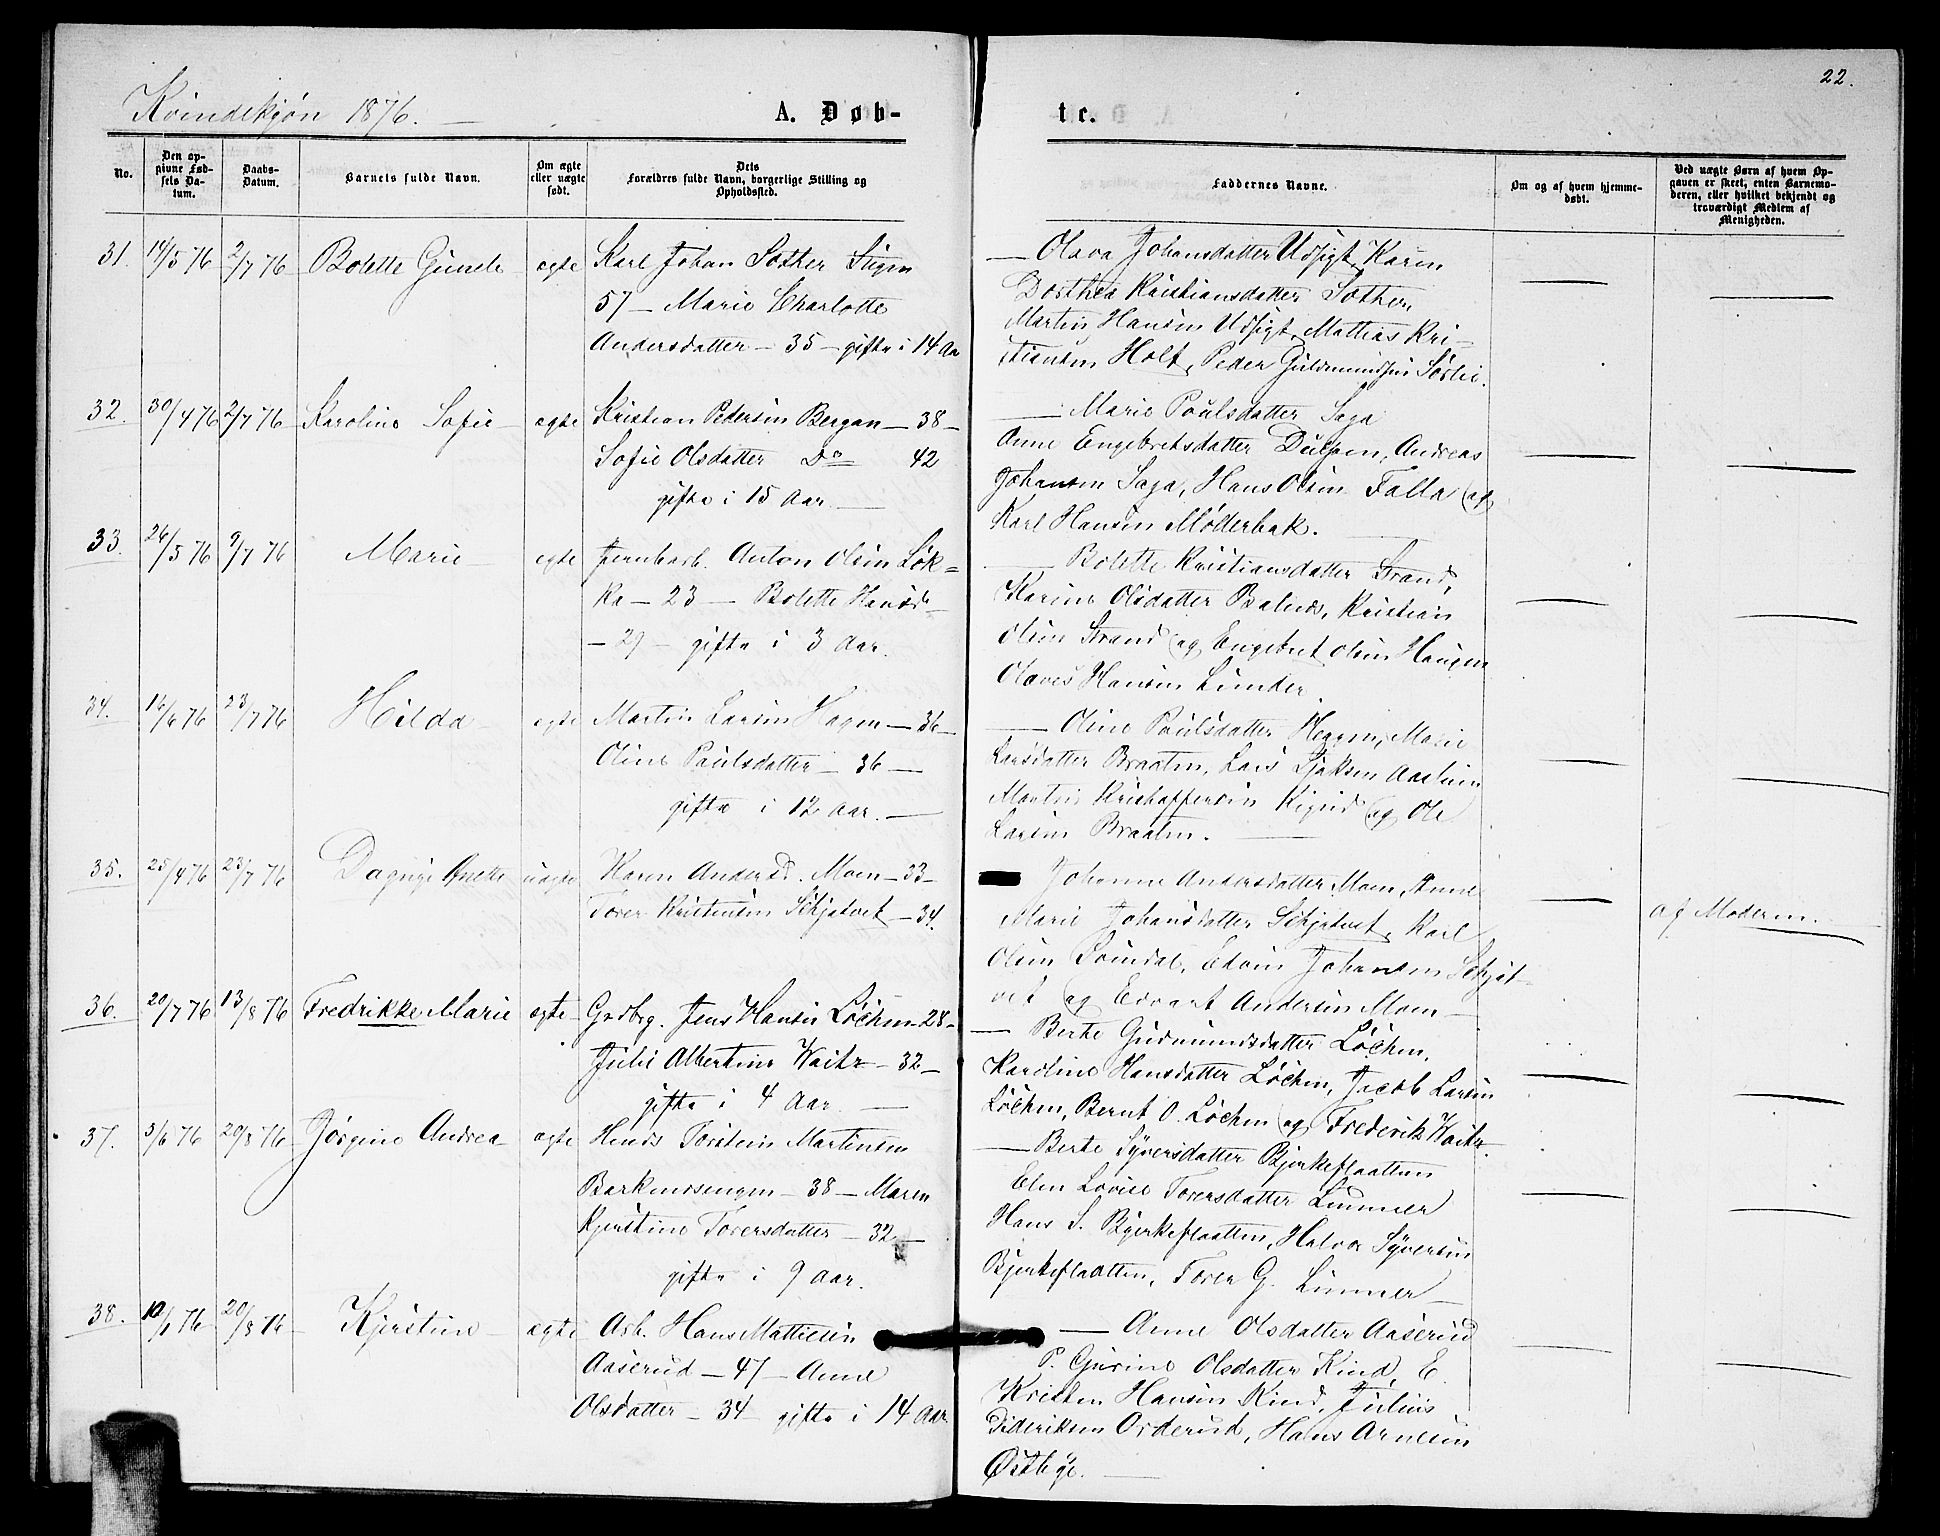 22.
Kvindekjøn 1876.
A. Døb-
te.
No.
Den op-
givne Fød-
sels Da-
tum.
Daabs-
Datum.
Barnets fulde Navn.
Om ægte
eller uægte
født.
Dets
Forældres fulde Navn, borgerlige Stilling og
Opholdssted.
Faddernes Navne.
Om og af hvem hjemme-
døbt.
Ved uægte Børn af hvem Op-
gaven er skeet, enten Barnemo-
deren, eller hvilket bekjendt og
troværdigt Medlem af
Menigheden.
31. 14/5 76 2/7 76 Bolette Gunele ægte Karl Johan Sother Stigen
57 – Marie Charlotte
Andersdatter – 35 – gifte i 14 Aar
Olava Johansdatter Udsigt, Karen
Dorthea Kristiansdatter Sother,
Martin Hansen Udsigt, Mathias Kri-
stiansen Holt, Peder Guldmundsen
32. 30/4 76 2/7 76 Karoline Sofie ægte Kristian Pedersen Bergan – 38 –
Sofie Olsdatter Do 42
gifte i 15 Aar.
Marie Poulsdatter Saga
Anne Engebretsdatter Dulpen, Andreas
Johansen Saga, Hans Olsen Falla og
Karl Hansen Møllerbak.
33. 26/5 76 9/7 76 Marie ægte Jernbarb. Anton Olsen Løk-
ka – 23 – Bolette Hansd.
– 29 – gifte i 3 Aar.
Bolette Kristiansdatter Strand,
Karine Olsdatter Kristian
Olsen Strand og Engebret Olsen Haugen
Olaves Hansen Lunder.
34. 16/6 76 23/7 76 Hilda ægte Martin Larsen Hagen – 36 –
Oline Paulsdatter – 36 –
gifte i 12 Aar.
Oline Paulsdatter Heggen, Marie
Larsdatter Braaten, Lars
Martin Kristoffersen og Ole
Larsen Braaten.
35. 25/4 76 23/7 76 Dagny Anette uægte Karen Andersd. Moen – 33 –
Torer Kristensen Schjatvet – 34.
Johanne Andersdatter Moen, Anne
Marie Johansdatter Schjatvet, Karl
Olsen Edvin Johansen Schjat-
vet og Edvart Andersen Moen
af Moderen.
36. 20/7 76 13/8 76 Fredrikke Marie ægte Grdbrg. Jens Hansen Løchen – 28 –
Julie Albertine Waitz – 32 –
gifte i 4 Aar.
Berte Gudmundsdatter Løchen,
Karoline Hansdatter Løchen, Jacob Larsen
Løchen, Bernt O. Løchen og Frederik Waitz.
37. 3/6 76 20/8 76 Jørgine Andrea ægte Hmds Torstein Martinsen
Barkenesengen – 38 – Maren
Kjerstine Torersdatter – 32 –
gifte i 9 Aar.
Berte Syversdatter Bjerkeflaatten
Elen Lovise Torersdatter Limmer
Hans S. Bjerkeflaatten, Halvor Syversen
Bjerkeflaatten, Torer G. Limmer
38. 10/6 76 20/8 76 Kjerstine ægte Arb. Hans Mattiesen
Aaserud – 47 – Anne
Olsdatter – 34 gifte i 14 Aar
Anne Olsdatter Aaserud
P. Gurine Olsdatter Kind, E.
Kristen Hansen Kind, Julius
Dideriksen Orderud, Hans Arnesen
Østbye.